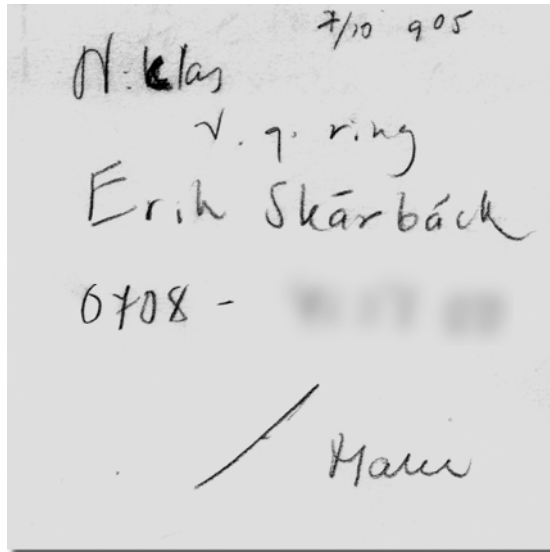 7/10 905
Niklas
V. g. ring
Erik Skárbáck
0708 -
/